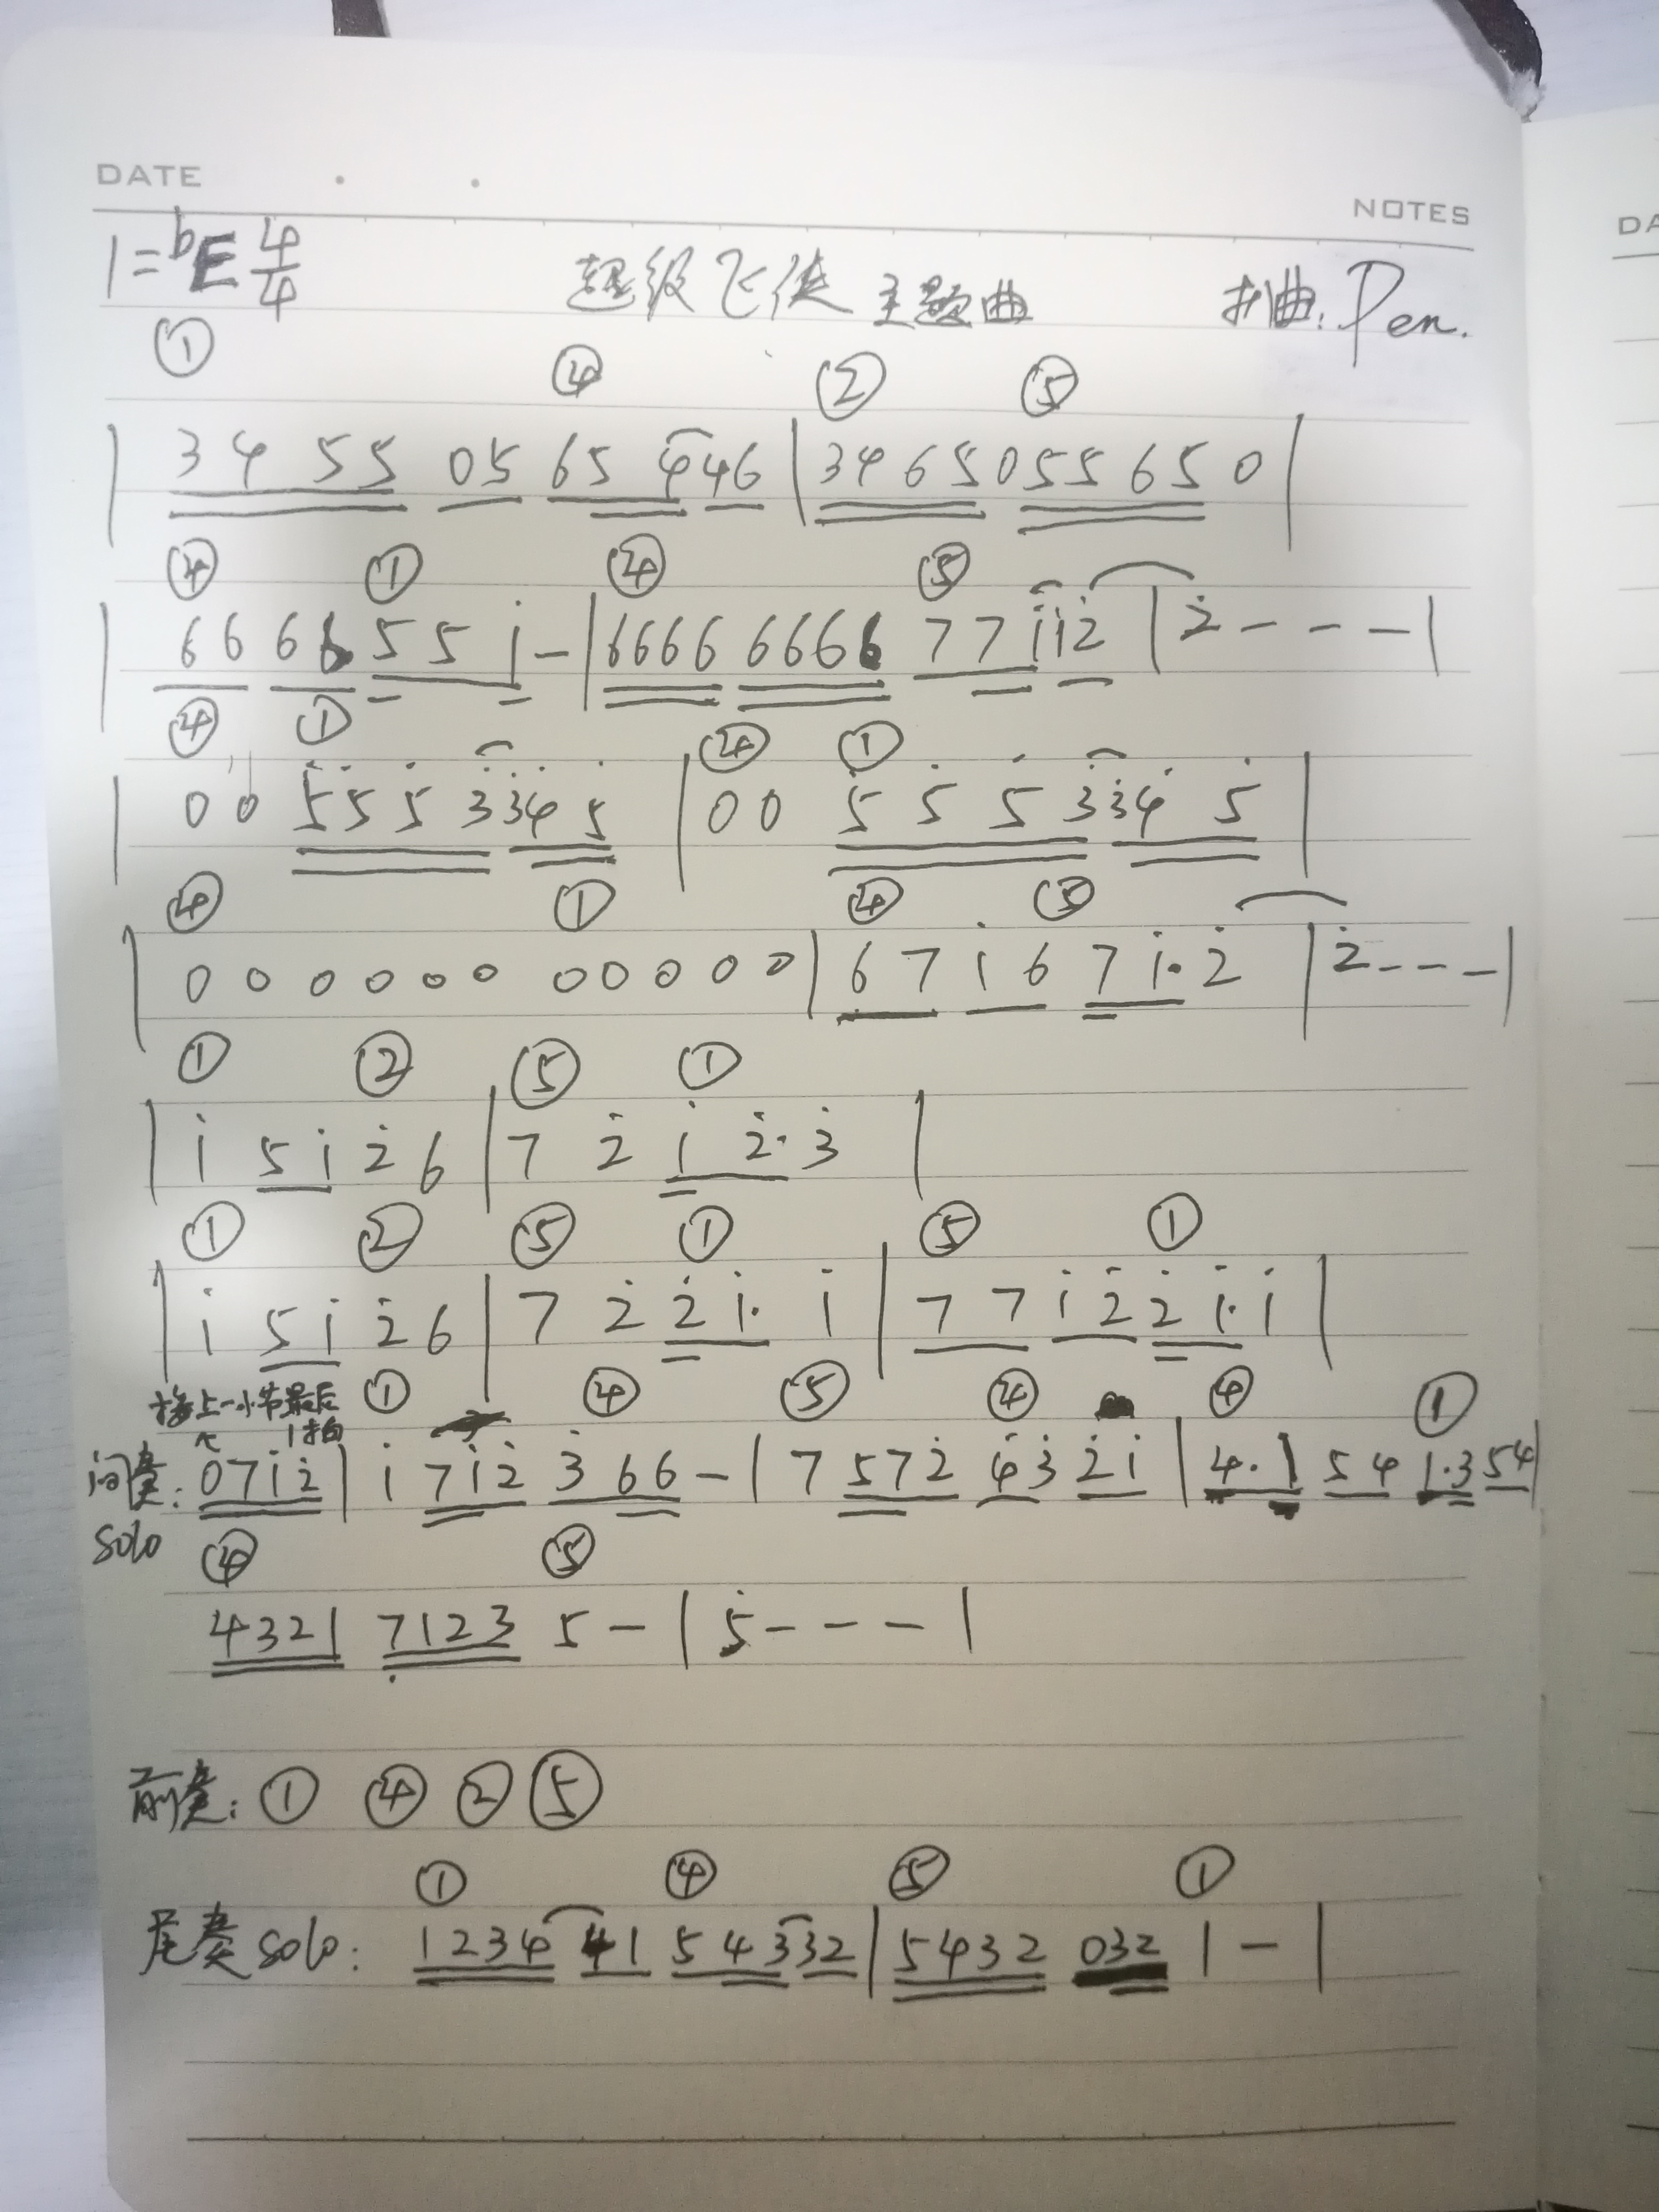 DATE
NOTES
1=bE 4/4 超级飞侠主题曲 扒曲:Pen.
① ④ ② ⑤
| 3 4 5 5 0 5 6 5 4 4 6 | 3 4 6 5 0 5 5 6 5 0 |
④ ① ④ ⑤
| 6 6 6 6 5 5 i - | 6 6 6 6 6 6 6 6 7 7 i̇ i̇ 2̇ | 2̇ - - - |
④ ① ④ ①
| 0 0 5̇ 5̇ 5̇ 3̇ 3̇ 4̇ 5̇ | 0 0 5̇ 5̇ 5̇ 3̇ 3̇ 4̇ 5̇ |
④ ① ④ ⑤
| 0 0 0 0 0 0 0 0 0 0 0 | 6 7 i 6 7 i· 2̇ | 2̇ - - - |
① ② ⑤ ①
| i 5 i 2̇ 6 | 7 2̇ i 2̇· 3̇ |
① ② ⑤ ① ⑤ ①
| i 5 i 2̇ 6 | 7 2̇ 2̇ i· i | 7 7 i 2̇ 2̇ i· i |
接上一小节最后1拍 ① ④ ⑤ ④ ④ ①
间奏: 0 7 i 2̇ | i 7 i 2̇ 3̇ 6 6 - | 7 5 7 2̇ 4̇ 3̇ 2̇ i | 4· 1 5 4 1·3 5 4 |
solo ④ ⑤
4 3 2 1 7̣ 1 2 3 5 - | 5̇ - - - |
前奏: ① ④ ② ⑤
① ④ ⑤ ①
尾奏solo: 1 2 3 4 4 1 5 4 3 3 2 | 5 4 3 2 0 3 2 1 - |